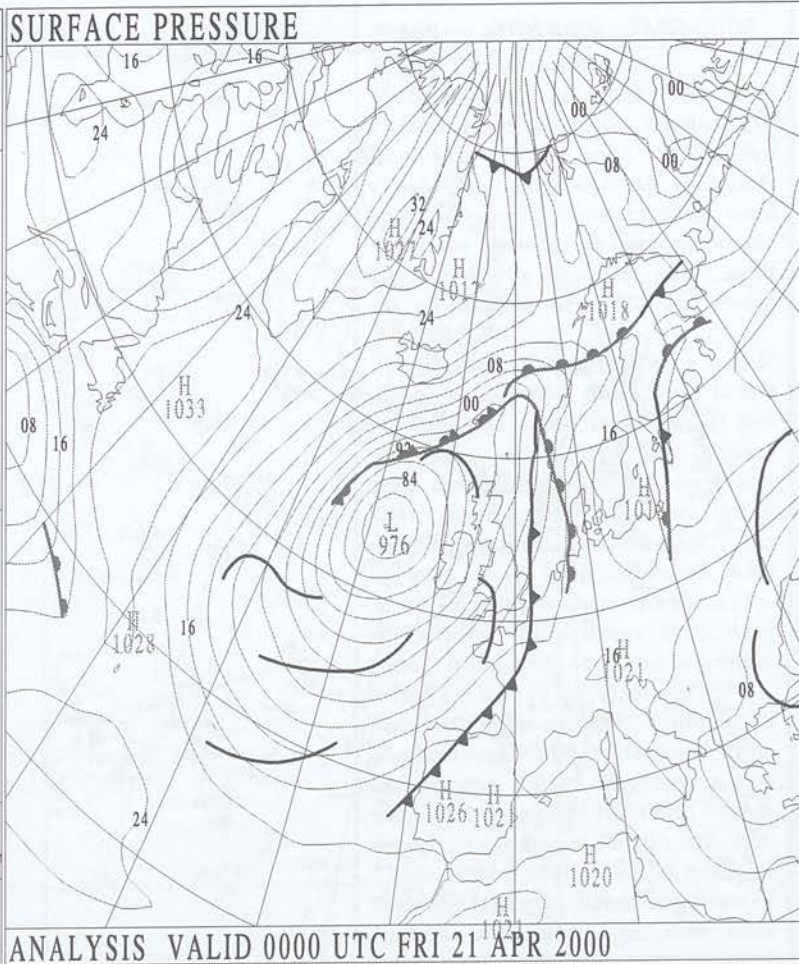 SURFACE PRESSURE
16
16
24
00
00
08
00
32
H
1022
24
H
1017
H
1018
24
24
H
1033
08
08
16
00
16
92
84
H
1018
L
976
H
1028
16
16
H
1021
08
24
H
1026
H
1021
H
1020
H
1021
ANALYSIS VALID 0000 UTC FRI 21 APR 2000